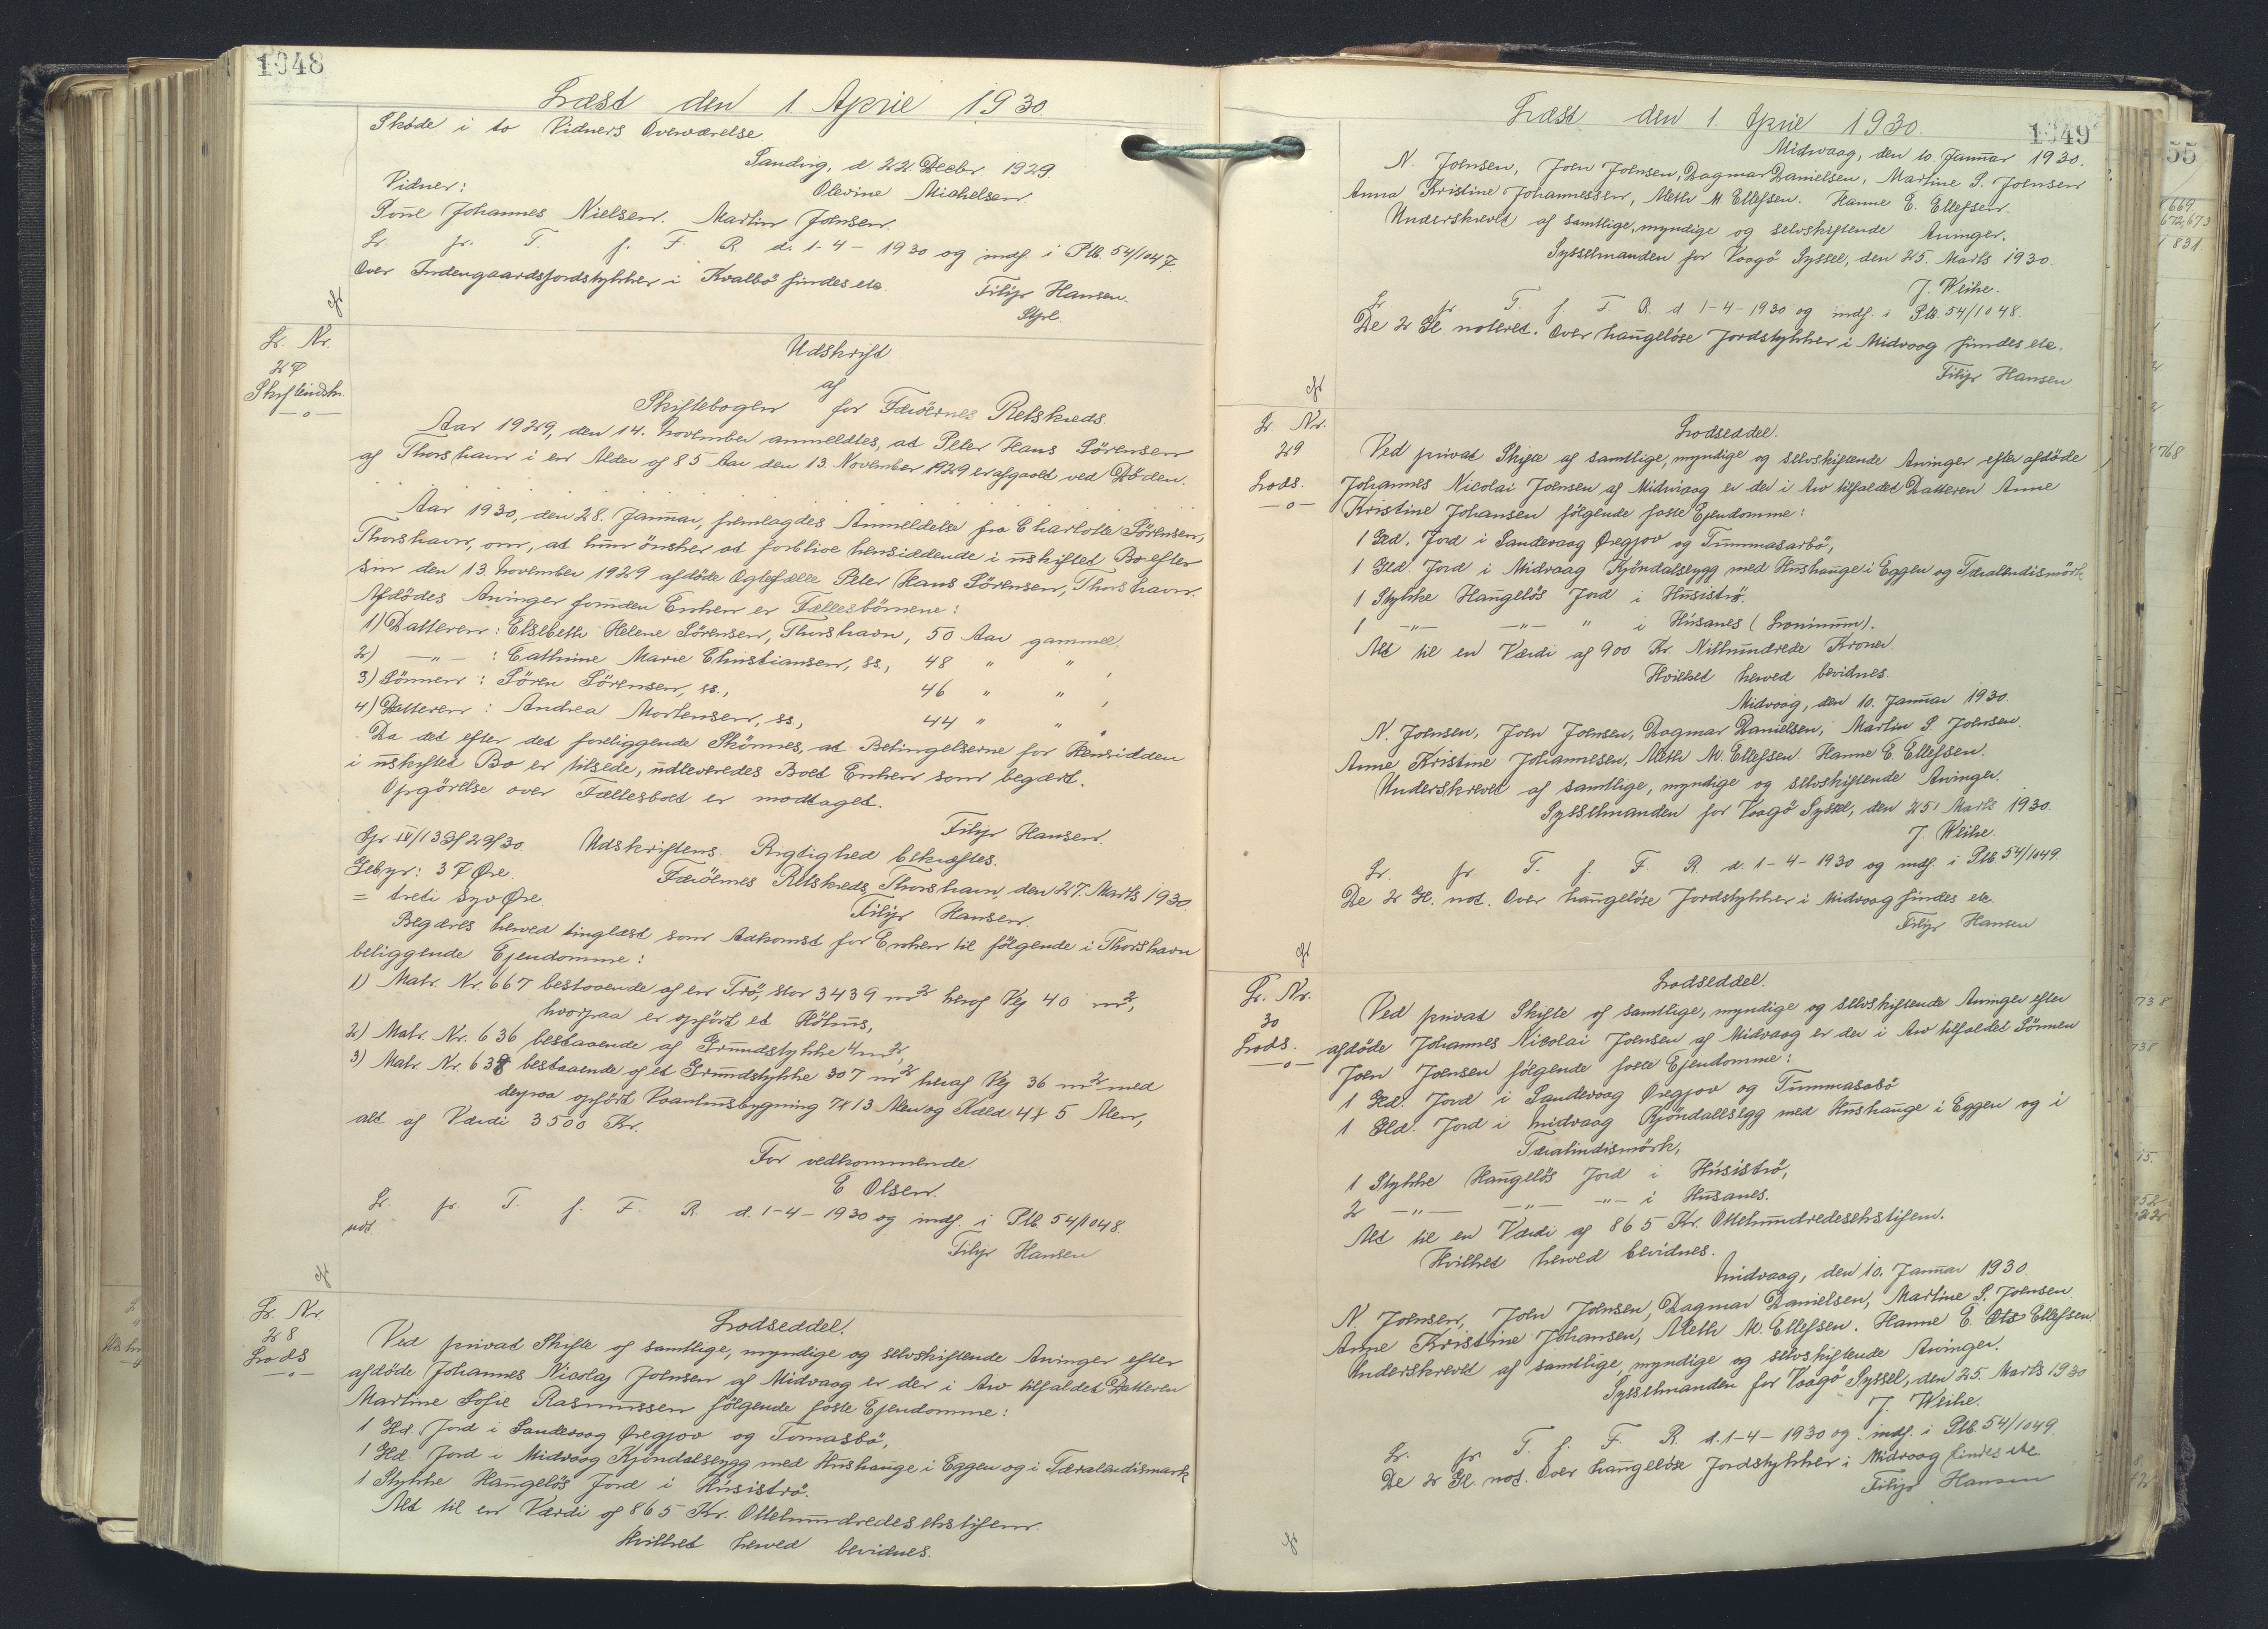 1048
Læst den 1. April 1930.
Skøde i to Vidners Overværelse
Sandvig, d 22 Decbr. 1929.
Vidner:
Olevine Michelsen.
Poul Johannes Nielsen. Martin Joensen.
Lr. fr. T. f. F. R. d. 1-4-1930 og indf. i Ptb. 54/1047
Over Indengaardsjordstykker i Kvalbö findes ele.
Filip Hansen.
Stfr.
Lr. Nr.
27
Skifteudskr.
—o—
Udskrift
af
Skiftebogen for Færöernes Retskreds.
Aar 1929, den 14. November anmeldtes, at Peter Hans Sörensen
af Thorshavn i en Alder af 85 Aar den 13. November 1929 er afgaaet ved Döden.
Aar 1930, den 28. Januar, fremlagdes Anmeldelse fra Charlotte Sörensen,
Thorshavn, om, at hun önsker at forblive hensiddende i uskiftet Bo efter
sin den 13. November 1929 afdöde Ægtefælle Peter Hans Sörensen, Thorshavn.
Afdödes Arvinger foruden Enken er Fællesbörnene:
1) Datteren: Elsebeth Helene Sörensen, Thorshavn, 50 Aar gammel,
2) —"— : Cathrine Marie Christiansen, ss., 48 " " ,
3) Sönnen : Sören Sörensen, ss., 46 " " ,
4) Datteren : Andrea Mortensen, ss., 44 " " .
Da det efter det foreliggende Skönnes, at Betingelserne for Hensidden
i uskiftet Bo er tilstede, udleveredes Boet Enken som begært.
Opgörelse over Fællesboet er modtaget.
Filip Hansen.
Gebyr: 37 Øre.
Udskriftens Rigtighed bekræftes.
= treti syv Øre
Færöernes Retskreds, Thorshavn, den 27. Marts 1930.
Filip Hansen.
Begæres herved tinglæst som Adkomst for Enken til fölgende i Thorshavn
beliggende Ejendomme:
1) Matr. Nr. 667 bestaaende af en Trö, stor 3439 m² heraf Vej 40 m²,
hvorpaa er opfört et Höhus,
2) Matr. Nr. 636 bestaaende af Grundstykke 4 m²,
3) Matr. Nr. 638 bestaaende af et Grundstykke 307 m² heraf Vej 36 m² med
derpaa opfört Vaanhusbygning 7x13 Alen og Kæld 4x5 Alen,
alt af Værdi 3500 Kr.
For vedkommende
E Olsen.
Lr. fr. T. f. F. R. d. 1-4-1930 og indf. i Ptb. 54/1048.
not.
Filip Hansen
Lr. Nr.
28
Lods
—o—
Lodseddel.
Ved privat Skifte af samtlige, myndige og selvskiftende Arvinger efter
afdöde Johannes Nicolaj Joensen af Midvaag er der i Arv tilfaldet Datteren
Martine Sofie Rasmussen fölgende faste Ejendomme:
1 Gld. Jord i Sandevaag Øregjov og Tomasbö,
1 Gld. Jord i Midvaag Kjöndalseygg med Hushauge i Eggen og i Tæralandismark
1 Stykke Haugelös Jord i Húsiströ.
Alt til en Værdi af 865 Kr. Ottehundredesekstifem.
Hvilket herved bevidnes.
1049
Læst den 1. April 1930.
Midvaag, den 10. Januar 1930.
N. Joensen, Joen Joensen, Dagmar Danielsen, Martine S. Joensen
Anna Kristine Johannessen, Meth M. Ellefsen. Hanne E. Ellefsen.
Underskrevet af samtlige, myndige og selvskiftende Arvinger.
Sysselmanden for Vaagö Syssel, den 25. Marts 1930.
J. Weihe.
Lr fr T. f. F R. d 1-4-1930 og indf. i Ptb. 54/1048.
De 2 Gl. noteret. Over haugelöse Jordstykker i Midvaag findes ele.
Filip Hansen
Lr. Nr.
29
Lods.
—o—
Lodseddel.
Ved privat Skifte af samtlige, myndige og selvskiftende Arvinger efter afdöde
Johannes Nicolai Joensen af Midvaag er der i Arv tilfaldet Datteren Anne
Kristine Johansen fölgende faste Ejendomme:
1 Gld. Jord i Sandevaag Øregjov og Tummasarbö,
1 Gld. Jord i Midvaag Kjöndalseygg med Hushauge i Eggen og Tæralandismörk
1 Stykke Haugelös Jord i Húsiströ.
1 —"— —"— " i Húsanes (Loninum).
Alt til en Værdi af 900 Kr. Nihundrede Kroner.
Hvilket herved bevidnes.
Midvaag, den 10. Januar 1930.
N. Joensen, Joen Joensen, Dagmar Danielsen, Martin S. Joensen.
Anne Kristine Johannesen, Meth M. Ellefsen. Hanne E. Ellefsen.
Underskrevet af samtlige, myndige og selvskiftende Arvinger.
Sysselmanden for Vaagö Syssel, den 25. Marts 1930.
J. Weihe.
Lr. fr. T. f. F. R. d. 1-4-1930 og indf. i Ptb. 54/1049.
De 2 Gl. not. Over haugelöse Jordstykker i Midvaag findes ele.
Filip Hansen
Lr. Nr.
30
Lods.
—o—
Lodseddel.
Ved privat Skifte af samtlige, myndige og selvskiftende Arvinger efter
afdöde Johannes Nicolai Joensen af Midvaag er der i Arv tilfaldet Sönnen
Joen Joensen fölgende faste Ejendomme:
1 Gld. Jord i Sandevaag Øregjov og Tummasabö
1 Gld. Jord i Midvaag Kjöndallsegg med Hushauge i Eggen og i
Tæralindismörk,
1 Stykke Haugelös Jord i Húsiströ,
2 —"— —"— i Húsanes.
Alt til en Værdi af 865 Kr. Ottehundredesekstifem.
Hvilket herved bevidnes.
Midvaag, den 10. Januar 1930.
N. Joensen, Joen Joensen, Dagmar Danielsen, Martine S. Joensen
Anne Kristine Johansen, Meth M. Ellefsen. Hanne E. Ellefsen.
Underskrevet af samtlige, myndige og selvskiftende Arvinger.
Sysselmanden for Vaagö Syssel, den 25. Marts 1930
J. Weihe.
Lr. fr. T. f. F. R. d. 1-4-1930 og indf. i Ptb. 54/1049.
De 2 Gl. not. Over haugelöse Jordstykker i Midvaag findes ele.
Filip Hansen
55
669
672,673
831
768
738
738
15.